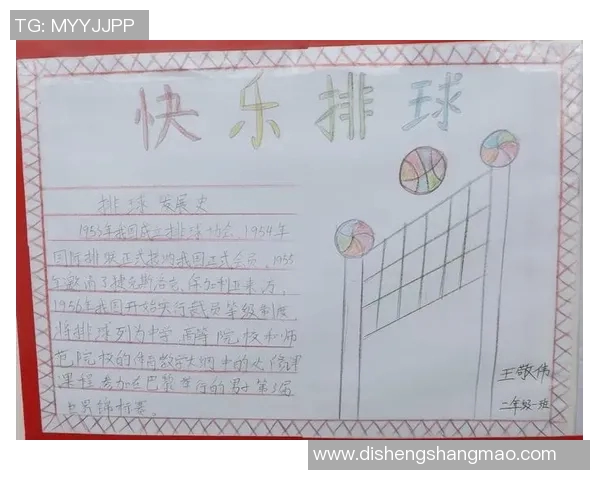 TG: MYYJJPP
快乐排球
排球发展史
1953年我国成立排球协会，1954年
国际排联正式接纳我国正式会员，1955
年邀请了捷克斯洛克，保加利亚来访，
1956年我国开始实行裁员等级制度，
将排球列为中学 高等院校和师
范院校的体育教学大纲中的
课程 参加在巴黎举行的男子第3届
世界锦标赛。
王敬伟
二年级一班
www.dishengshangmao.com